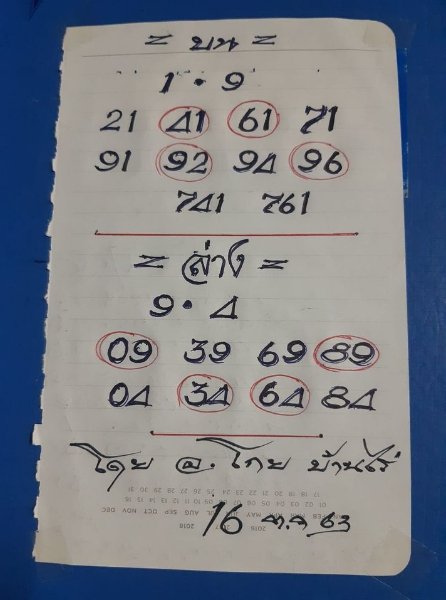 = บน =
1 • 9
21 41 61 71
91 92 94 96
741 761
= ล่าง =
9 • 4
09 39 69 89
04 34 64 84
โดย อ. โกย บ้านไร่
16 ต.ค 63